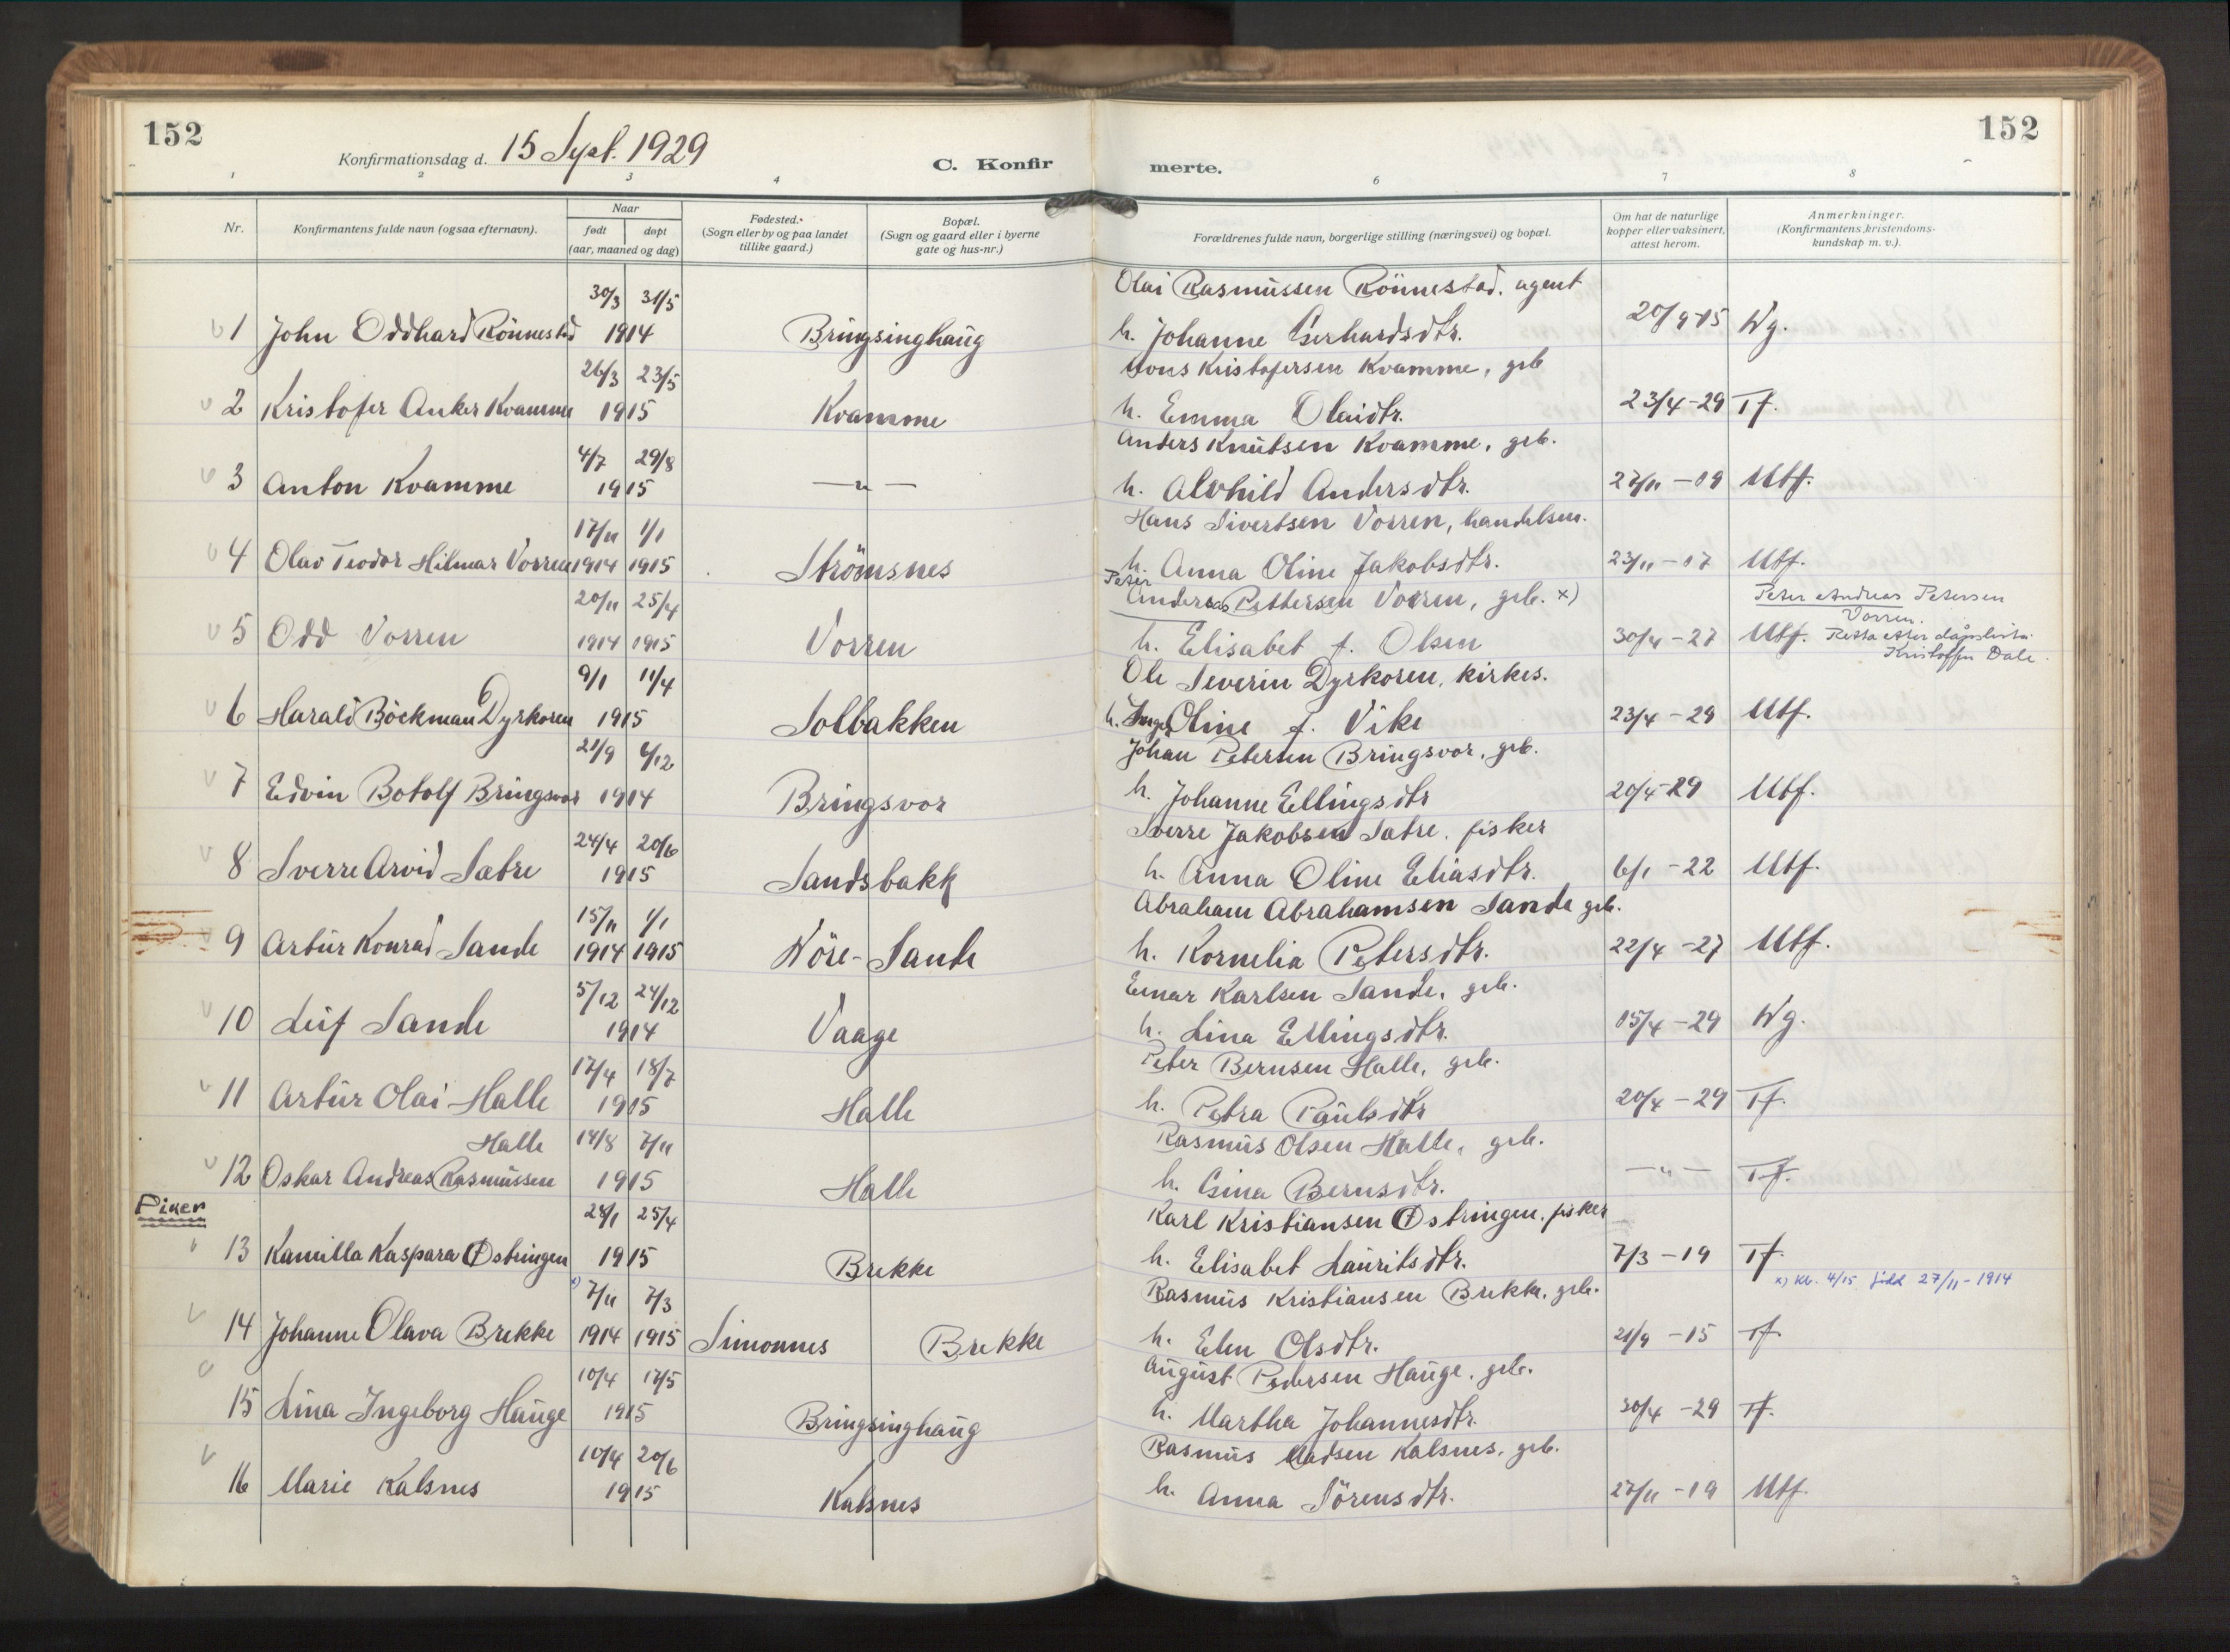 152
Konfirmationsdag d. 15 Sept. 1929
C. Konfir
merte.
152
1 2 3 4 6 7 8
Nr.
Konfirmantens fulde navn (ogsaa efternavn).
Naar
født døpt
(aar, maaned og dag)
Fødested.
(Sogn eller by og paa landet
tillike gaard.)
Bopæl.
(Sogn og gaard eller i byerne
gate og hus-nr.)
Forældrenes fulde navn, borgerlige stilling (næringsvei) og bopæl.
Om hat de naturlige
kopper eller vaksinert,
attest herom.
Anmerkninger.
(Konfirmantens kristendoms-
kundskap m. v.).
30/3 31/5 Olai Rasmussen Rönnestad, agent
1 John Oddhard Rönnestad 1914 Bringsinghaug h. Johanne Gerhardsdtr. 20/9-15 Wg.
26/3 23/5 Mons Kristofersen Kvamme, grb
2 Kristofer Anker Kvamme 1915 Kvamme h. Emma Olaidtr. 23/4-29 Tf.
4/7 29/8 Anders Knutsen Kvamme, grb.
3 Anton Kvamme 1915 —"— h. Alvhild Andersdtr. 27/11-19 Mtf.
17/11 1/1 Hans Sivertsen Vorren, handelsm.
4 Olav Teodor Hilmar Vorren 1914 1915 Strömsnes h. Anna Oline Jakobsdtr. 23/11-17 Mtf.
20/11 25/4 Peter Andreas Pettersen Vorren, grb. x) Peter Andreas Petersen
Vorren.
5 Odd Vorren 1914 1915 Vorren h. Elisabet f. Olsen 30/4-27 Mtf. Retta etter dåpslista.
Kristoffer Dale.
9/1 11/4 Ole Severin Dyrkoren, kirkes.
6 Harald Böckman Dyrkoren 1915 Solbakken h. Inga Oline f. Vike 23/4-29 Mtf.
21/9 6/12 Johan Petersen Bringsvor, grb.
7 Edvin Botolf Bringsvor 1914 Bringsvor h. Johanne Ellingsdtr 20/4-29 Mtf.
24/4 20/6 Sverre Jakobsen Sætre, fisker
8 Sverre Arvid Sætre 1915 Sandsbakk h. Anna Oline Eliasdtr. 6/1-22 Mtf.
15/11 1/1 Abraham Abrahamsen Sande grb.
9 Artur Konrad Sande 1914 1915 Nöre-Sande h. Kornelia Petersdtr. 22/4-27 Mtf.
5/12 24/12 Einar Karlsen Sande, grb.
10 Leif Sande 1914 Vaage h. Lina Ellingsdtr. 15/4-29 Wg.
17/4 18/7 Peter Bernsen Halle, grb.
11 Artur Olai Halle 1915 Halle h. Petra Paulsdtr 20/4-29 Tf.
Halle 14/8 7/11 Rasmus Olsen Halle, grb.
12 Oskar Andreas Rasmussen 1915 Halle h. Gina Bernsdtr. —"— Tf.
Piker
28/1 25/4 Karl Kristiansen Østringen, fisker
13 Kamilla Kaspara Østringen 1915 Brekke h. Elisabet Lauritsdtr. 7/3-19 Tf.
x) 7/11 7/3 Rasmus Kristiansen Brekke, grb. x) Kl. 4/15 född 27/11-1914
14 Johanne Olava Brekke 1914 1915 Simonnes Brekke h. Elen Olsdtr. 21/9-15 Tf.
10/4 17/5 August Pedersen Hauge, grb.
15 Lina Ingeborg Hauge 1915 Bringsinghaug h. Martha Johannesdtr. 30/4-29 Tf.
10/4 20/6 Rasmus Madsen Kalsnes, grb.
16 Marie Kalsnes 1915 Kalsnes h. Anna Sörensdtr. 27/11-19 Mtf.